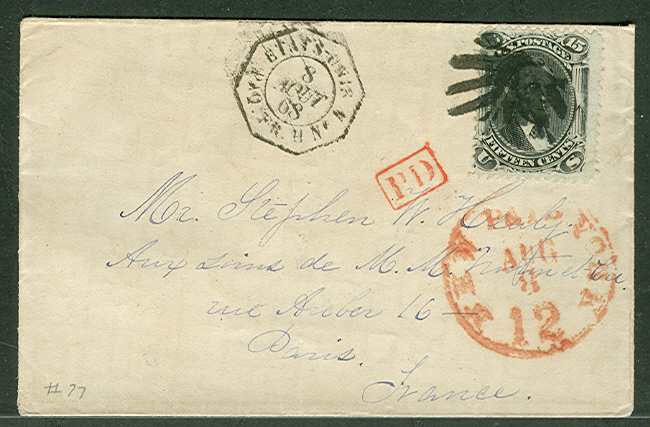 U.S. POSTAGE.
15
FIFTEEN CENTS.
U S
ETATS-UNIS
8
AOUT
68
PD
NEW YORK
PAID
AUG
8
12
Mr. Stephen W. Healy.
Aux soins de M. M. et Cie.
rue Auber 16 —
Paris.
France.
#77